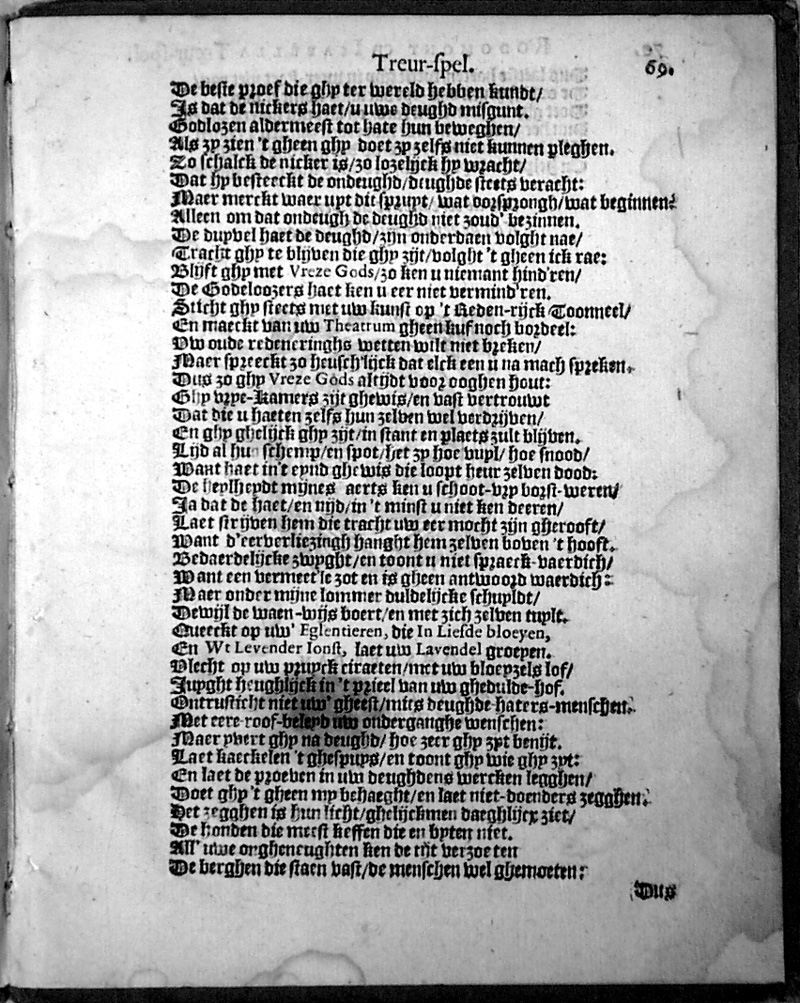 Treur-spel. 69.
De beste proef die ghy ter wereld hebben kundt/
Is dat de nickers haet/u uwe deughd misgunt.
Godlozen aldermeest tot hate hun beweghen/
Als zy zien 't gheen ghy doet zy zelfs niet kunnen pleghen.
Zo schalck de nicker is/zo lozelijck hy wracht/
Dat hy besteeckt de ondeughd/deughde steets veracht:
Maer merckt waer uyt dit spruyt/wat oorsprongh/wat beginnen?
Alleen om dat ondeugh de deughd niet zoud' bezinnen.
De duyvel haet de deughd/zijn onderdaen volght nae/
Tracht ghy te blijven die ghy zijt/volght 't gheen ick rae:
Blijft ghy met Vreze Gods/zo ken u niemant hind'ren/
De Godeloozers haet ken u eer niet vermind'ren.
Sticht ghy steets met uw kunst op 't Reden-rijck Toonneel/
En maeckt van uw Theatrum gheen kuf noch bordeel:
Uw oude redeneringhs wetten wilt niet breken/
Maer spreeckt zo heusch'lijck dat elck een u na mach spreken.
Dus zo ghy Vreze Gods altijdt voor ooghen hout:
Ghy vrye-Kamers zijt ghewis/en vast vertrouwt
Dat die u haeten zelfs hun zelven wel verdrijven/
En ghy ghelijck ghy zijt/in stant en plaets zult blijven.
Lijd al hun schemp/en spot/het zy hoe vuyl/ hoe snood/
Want haet in't eynd ghewis die loopt heur zelven dood:
De heylheydt mijnes aerts ken u schoot-vry borst-weren/
Ja dat de haet/en nijd/in 't minst u niet ken deeren/
Laet strijven hem die tracht uw eer mocht zijn gherooft/
Want d'eerverliezingh hanght hem zelven boven 't hooft.
Bedaerdelijcke zwyght/en toont u niet spraeck-vaerdich/
Want een vermeet'le zot en is gheen antwoord waerdich:
Maer onder mijne lommer duldelijcke schuyldt/
Dewijl de waen-wijs boert/en met zich zelven tuylt.
Queeckt op uw' Eglentieren, die In Liefde bloeyen,
En Wt Levender Ionst, laet uw Lavendel groepen.
Vlecht op uw pruyck ciraeten/met uw bloeyzels lof/
Juyght heughlijck in 't prieel van uw ghedulde-hof.
Ontrusticht niet uw' gheest/mits deughde-haters-menschen.
Met eere roof-beleyd uw onderganghe wenschen:
Maer yvert ghy na deughd/ hoe zeer ghy zyt benijt.
Laet kaeckelen 't ghespuys/en toont ghy wie ghy zyt:
En laet de proeven in uw deughdens wercken legghen/
Doet ghy 't gheen my behaeght/en laet niet-doenders zegghen.
Het zegghen is hun licht/ghelijckmen daeghlijcx ziet/
De honden die meest keffen die en byten niet.
All' uwe ongheneughten ken de tijt verzoeten
De berghen die staen vast/de menschen wel ghemoeten:
Dus